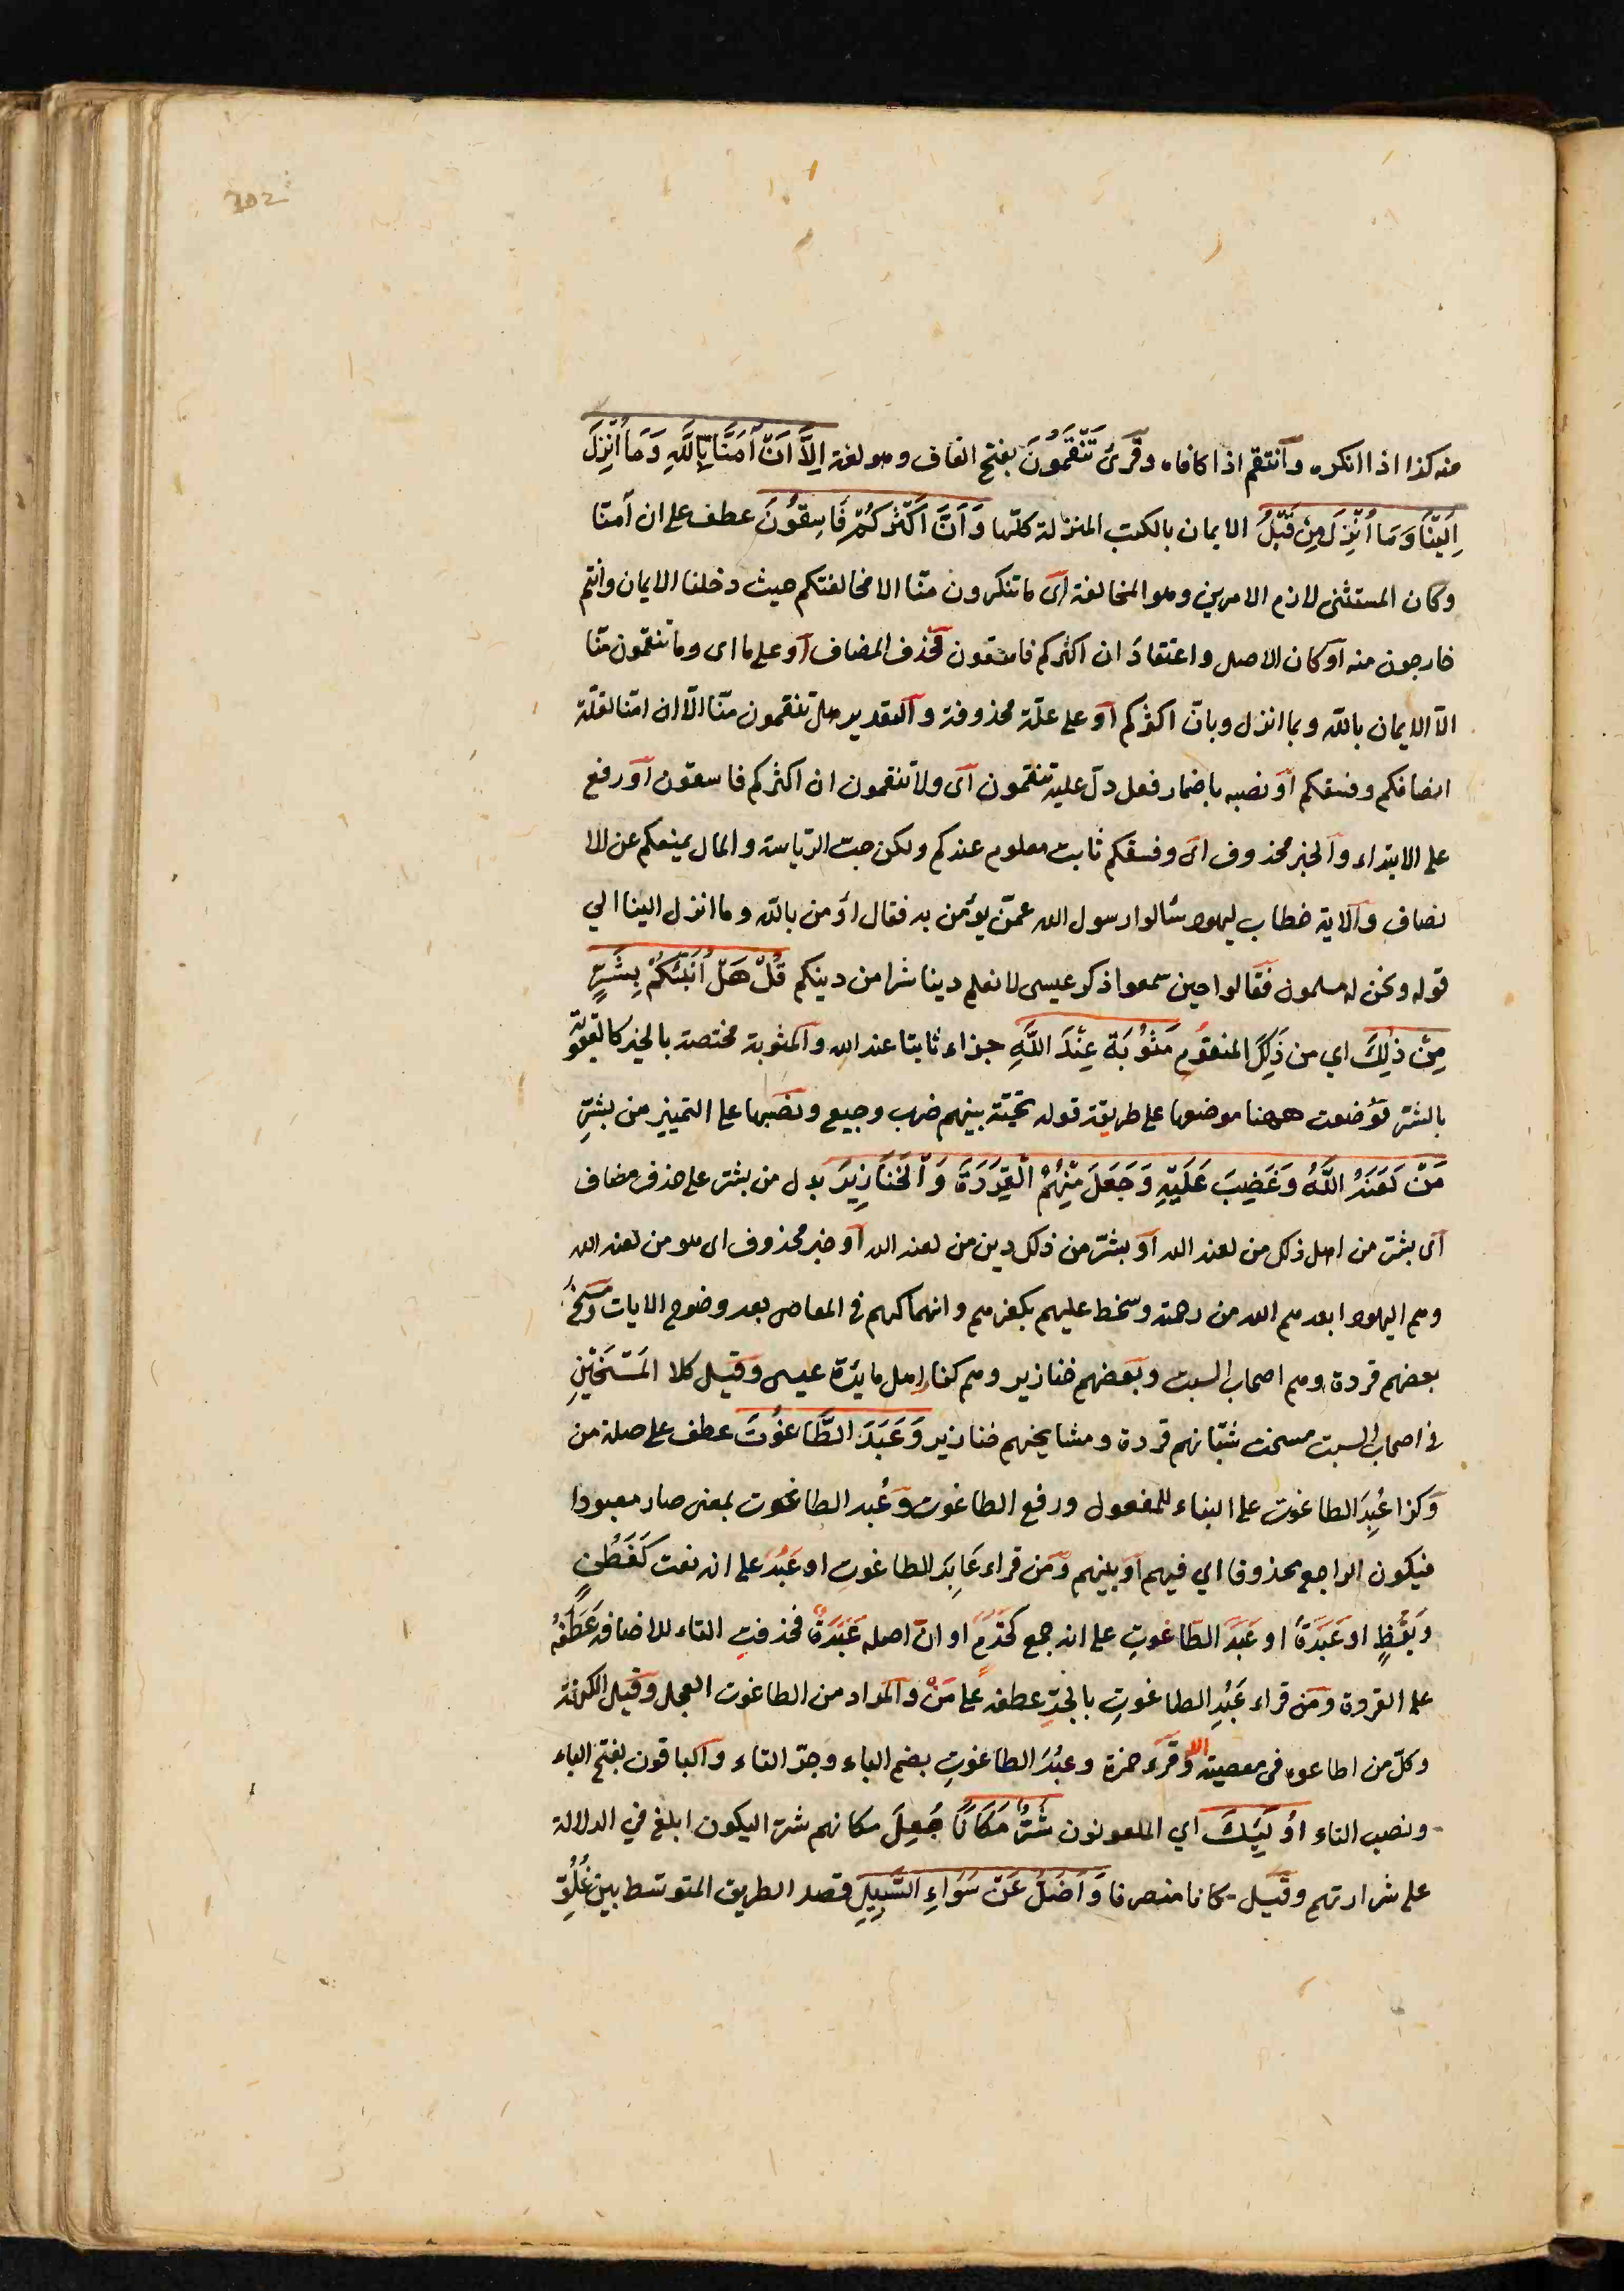 302
منه كذا اذا انكره وانتقم اذا كافاه وقرئ تَنْقَمُونَ بفتح القاف وهو لغة اِلَّا اَنْ اٰمَنَّا بِاللّٰهِ وَمَا اُنْزِلَ
اِلَيْنَا وَمَا اُنْزِلَ مِنْ قَبْلُ الايمان بالكتب المنزلة كلّها وَاَنَّ اَكْثَرَكُمْ فَاسِقُونَ عطف على ان اٰمنّا
وكان المستثنى لازم الامرين وهو المخالفة اى ما تنكرون منّا الا مخالفتكم حيث دخلنا الايمان وانتم
خارجون منه او كان الاصل واعتقادَ ان اكثركم فاسقون فحذف المضاف او على ما اى وما تنقمون منّا
الّا الايمان بالله وبما انزل وبانّ اكثركم او على علّة محذوفة والتقدير هل تنقمون منّا الّا ان امنّا لقلّة
انصافكم وفسقكم او نصبه باضمار فعل دلّ عليه تنقمون اى ولا تنقمون ان اكثركم فاسقون او رفع
على الابتداء والخبر محذوف اى وفسقكم ثابت معلوم عندكم ولكن حبّ الرّياسة والمال يمنعكم عن الا
نصاف والاية خطاب ليهود سألوا رسول الله عمّن يؤمن به فقال اؤمن بالله وما انزل الينا الي
قوله ونحن له مسلمون فقالوا حين سمعوا ذكر عيسى لا نعلم دينا شرا من دينكم قُلْ هَلْ اُنَبِّئُكُمْ بِشَرٍّ
مِنْ ذٰلِكَ اي من ذٰلِكَ المنقوم مَثُوبَةً عِنْدَ اللّٰهِ جزاء ثابتا عند الله والمثوبة مختصة بالخير كالعقوبة
بالشّر فوضعت ههنا موضعها على طريقة قوله تحيّة بينهم ضرب وجيع ونصبها على التمييز من بشرّ
مَنْ لَعَنَهُ اللّٰهُ وَغَضِبَ عَلَيْهِ وَجَعَلَ مِنْهُمُ الْقِرَدَةَ وَالْخَنَازِيرَ بدل من بشرّ على حذف مضاف
اى بشرّ من اهل ذلك من لعنه الله او بشرّ من ذلك دين من لعنه الله او خبر محذوف اى هو من لعنه الله
وهم اليهود ابعدهم الله من رحمته وسخط عليهم بكفرهم وانهماكهم في المعاصى بعد وضوح الايات ومسخ
بعضهم قردة وهم اصحاب السبت وبعضهم خنازير وهم كفار اهل مائدة عيسى وقيل كلا المَسْخَيْنِ
في اصحاب السبت مسخت شبّانهم قردة ومشايخهم خنازير وَعَبَدَ الطَّاغُوتَ عطف على صلة من
وكذا عُبِدَ الطاغوت على البناء للمفعول ورفع الطاغوت وعَبُد الطاغوت بمعنى صار معبودا
فيكون الراجع محذوفا اي فيهم او بينهم ومن قراء عَابِدَ الطاغوت او عَبُدَ على انه نعت كَفَطُنٍ
وَيَقُظٍ او عَبَدَةَ او عَبَدَ الطّاغوتِ على انه جمع كخَدَمٍ او انّ اصله عَبَدَةٌ فحذفت التاء للاضافة عَطَفَهُ
على القردة ومن قراء عَبْدِ الطاغوتِ بالجرّ عطفه على مَنْ والمراد من الطاغوت العجل وقيل الكهنة
وكلّ من اطاعوه فى معصية الله وقرء حمزة وعَبُدَ الطاغوتِ بضم الباء وجرّ التاء والباقون بفتح الباء
ونصب التاء اُولٰئِكَ اي الملعونون شَرٌّ مَكَانًا جُعِلَ مكانهم شرّا ليكون ابلغ في الدلالة
على شرارتهم وقيل مكانا منصرفا وَاَضَلُّ عَنْ سَوَاءِ السَّبِيلِ قصد الطريق المتوسط بين غُلُوِّ